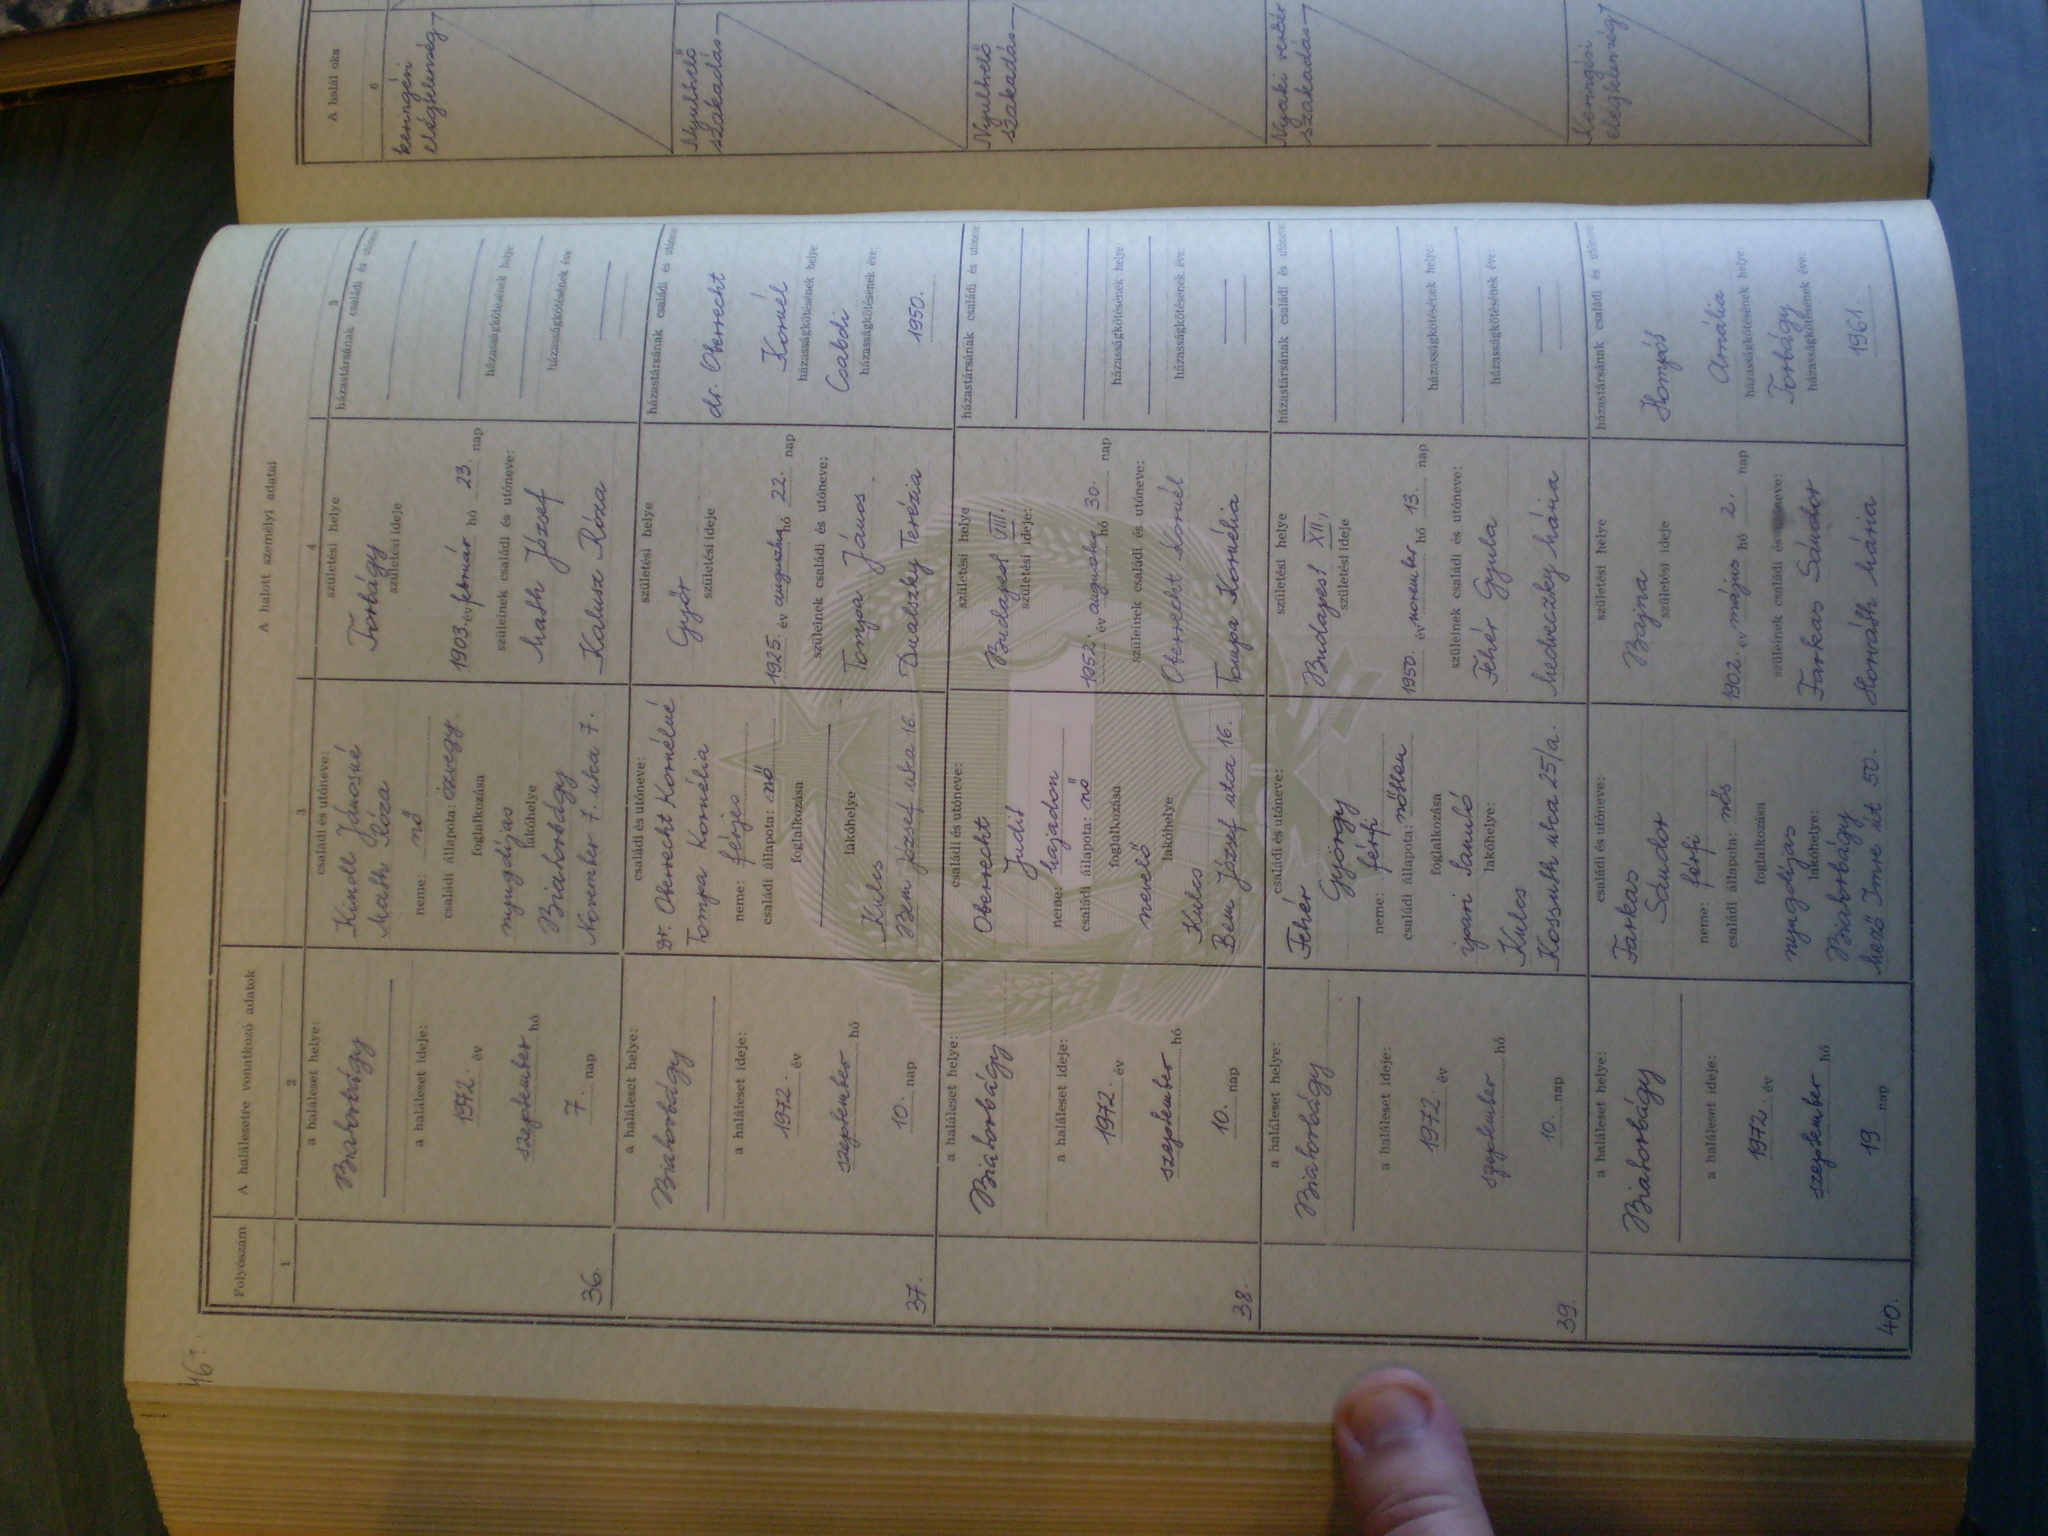 46.
Folyószám
A halálesetre vonatkozó adatok
A halott személyi adatai
A halál oka
1
2
3
4
5
6
36.
a haláleset helye:
Biatorbágy
a haláleset ideje:
1972. év
szeptember hó
7. nap
családi és utóneve:
Kindl Jánosné
Math Róza
neme: nő
családi állapota: özvegy
foglalkozása
nyugdíjas
lakóhelye
Biatorbágy
November 7. utca 7.
születési helye
Torbágy
születési ideje
1903. év február hó 23. nap
szüleinek családi és utóneve:
Math József
Kalusz Róza
házastársának családi és utóneve
házasságkötésének helye
házasságkötésének éve:
keringési
elégtelenség
37.
a haláleset helye:
Biatorbágy
a haláleset ideje:
1972. év
szeptember hó
10. nap
családi és utóneve:
Dr. Oberrecht Kornélné
Tompa Kornélia
neme: férjes
családi állapota: nő
foglalkozása
lakóhelye
Kulcs
Bem József utca 16.
születési helye
Győr
születési ideje
1925. év augusztus hó 22. nap
szüleinek családi és utóneve:
Tompa János
Terézia
házastársának családi és utóneve
dr. Oberrecht
Kornél
házasságkötésének helye
Csabdi
házasságkötésének éve:
1950.
Nyultvelő
szakadás
38.
a haláleset helye:
Biatorbágy
a haláleset ideje:
1972. év
szeptember hó
10. nap
családi és utóneve:
Oberrecht
Judit
neme: hajadon
családi állapota: nő
foglalkozása
nevelő
lakóhelye
Kulcs
Bem József utca 16.
születési helye
Budapest VIII.
születési ideje:
1952. év augusztus hó 30. nap
szüleinek családi és utóneve:
Oberrecht Kornél
Tompa Kornélia
házastársának családi és utóneve
házasságkötésének helye:
házasságkötésének éve:
Nyultvelő
szakadás
39.
a haláleset helye:
Biatorbágy
a haláleset ideje:
1972. év
szeptember hó
10. nap
családi és utóneve:
Fehér
György
neme: férfi
családi állapota: nőtlen
foglalkozása
ipari tanuló
lakóhelye:
Kulcs
Kossuth utca 25/a.
születési helye
Budapest XII.,
születési ideje
1950. év november hó 13. nap
szüleinek családi és utóneve:
Fehér Gyula
Medveczky Mária
házastársának családi és utóneve
házasságkötésének helye:
házasságkötésének éve:
Nyaki
szakadás
40.
a haláleset helye:
Biatorbágy
a haláleset ideje:
1972. év
szeptember hó
19 nap
családi és utóneve:
Farkas
Sándor
neme: férfi
családi állapota: nős
foglalkozása
nyugdíjas
lakóhelye:
Biatorbágy
Mező Imre út 50.
születési helye
Bajna
születési ideje
1902. év május hó 2. nap
szüleinek családi és utóneve:
Farkas Sándor
Horváth Mária
házastársának családi és utóneve
Amália
házasságkötésének helye
Torbágy
házasságkötésének éve:
1961.
Keringési
elégtelenség